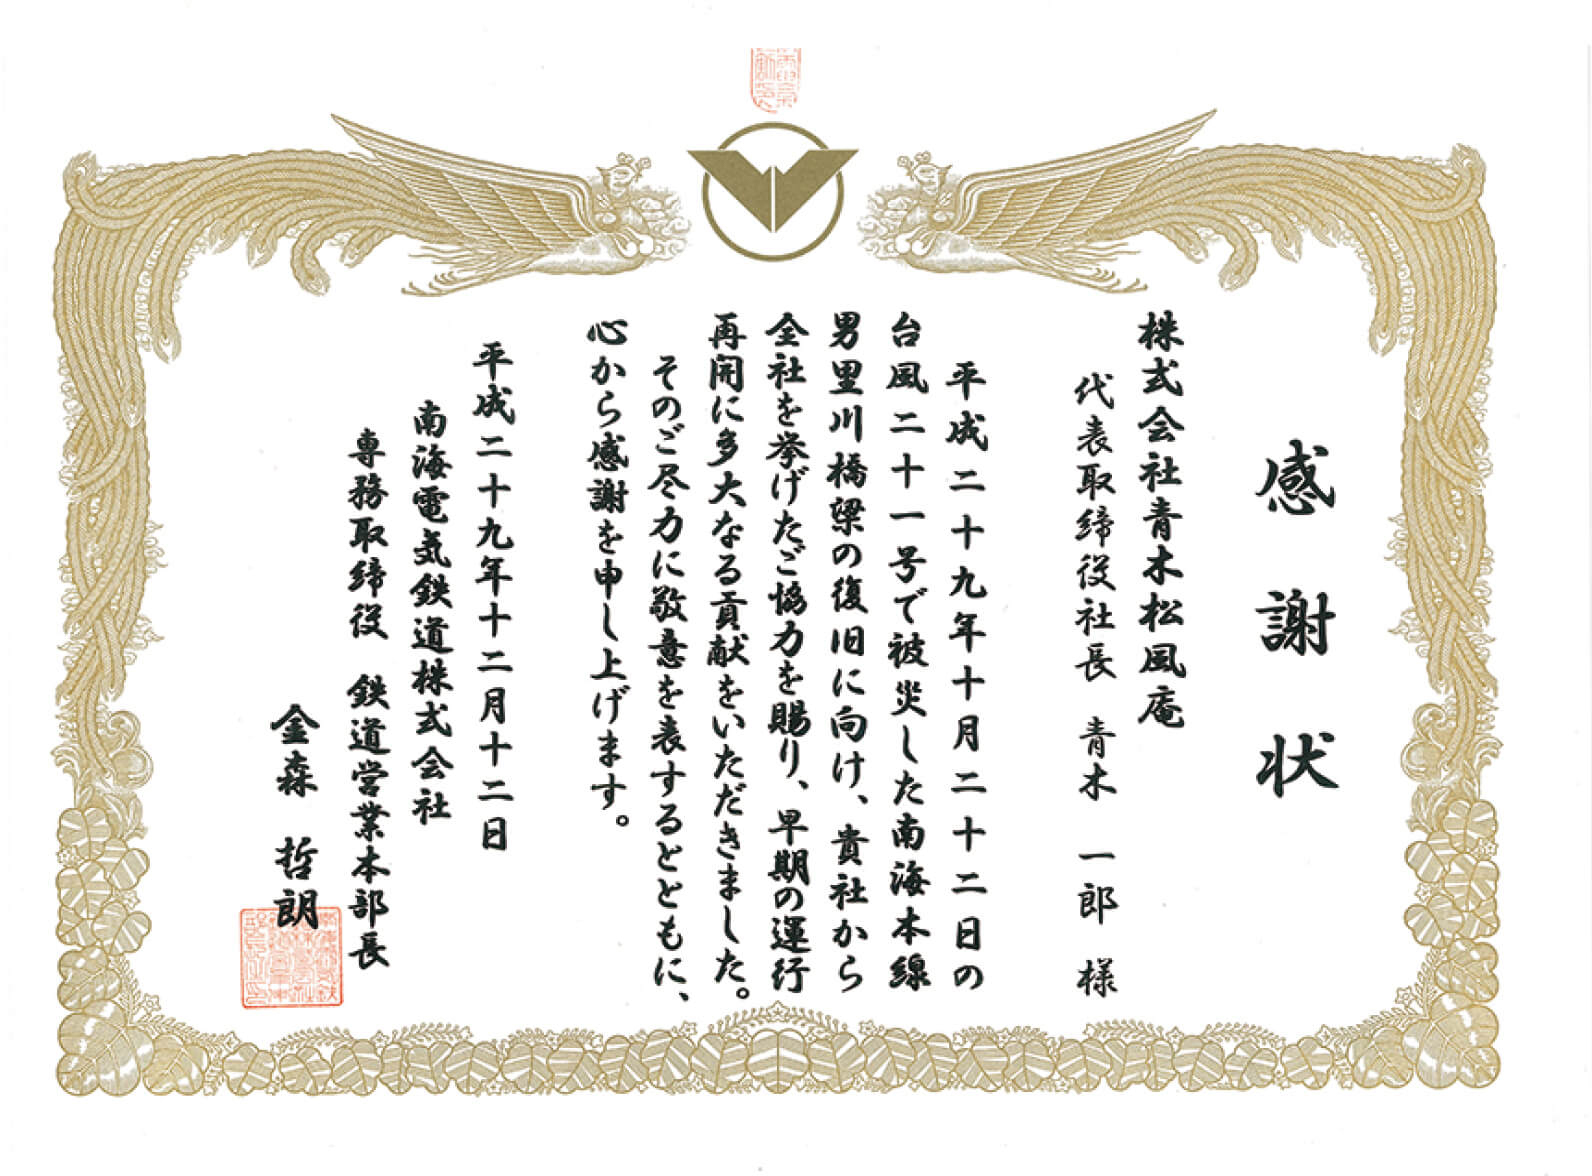 感謝状
株式会社青木松風庵
代表取締役社長 青木 一郎 様
平成二十九年十月二十二日の
台風二十一号で被災した南海本線
男里川橋梁の復旧に向け、貴社から
全社を挙げたご協力を賜り、早期の運行
再開に多大なる貢献をいただきました。
そのご尽力に敬意を表するとともに、
心から感謝を申し上げます。
平成二十九年十二月十二日
南海電気鉄道株式会社
専務取締役 鉄道営業本部長
金森 哲朗